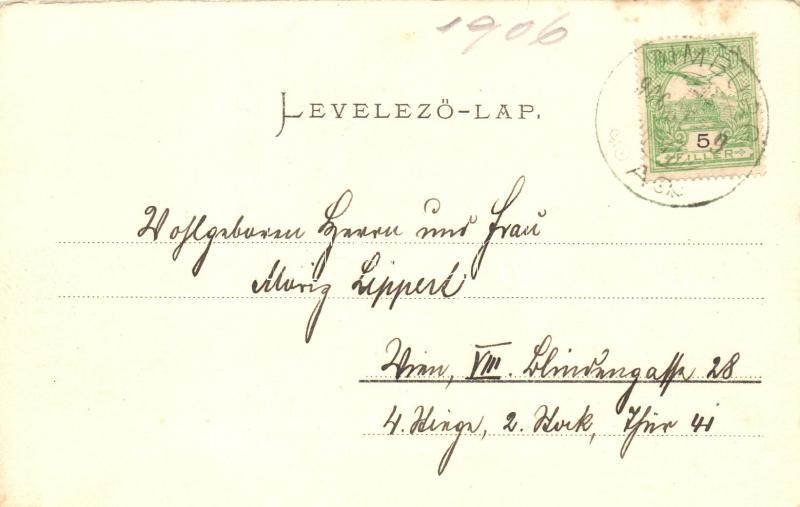 1906
LEVELEZŐ-LAP.
5
FILLÉR
Wohlgeboren Herrn und Frau
Moriz Lippert
Wien, VIII. Blindengasse 28
4. Stiege, 2. Stock, Thür 41